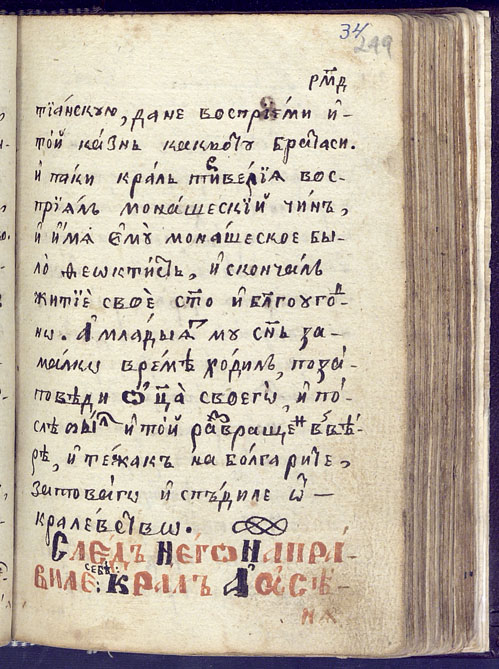 34
249
рм҃д
тїа́нскую, да не воспрїе́ми и҆
то́й ка́знь како́то у҆ бра́та си.
И҆ паки кра́ль тиве́рїѧ вос-
прїѧ́лъ мона́шескїй чи́нъ,
и҆ и҆́мѧ є҆мꙋ̀ мона́шеское бы-
ло̀ ѳеокти́стъ, и҆ сконча́лъ
житїѐ своѐ ст҃о и҆ бл҃гоугѡ́-
нѡ. А҆ млады́ѧ мꙋ сн҃ъ за
ма́лко време́ ѣ ходи́лъ, по за́-
повѣди ѿ ц҃а̀ своегѡ̀, и҆ по-
слѣ бы́л и҆ то́й развраще́н в вѣ́-
рѣ, и҆ те́жакъ на бо́лгарите,
затова́гѡ и҆ спѣ́диле ѿ
крале́вствѡ.
Слѣ́дъ не́гѡ напра́-
виле себѣ̀: кра́лъ А҆ѡсѣ-